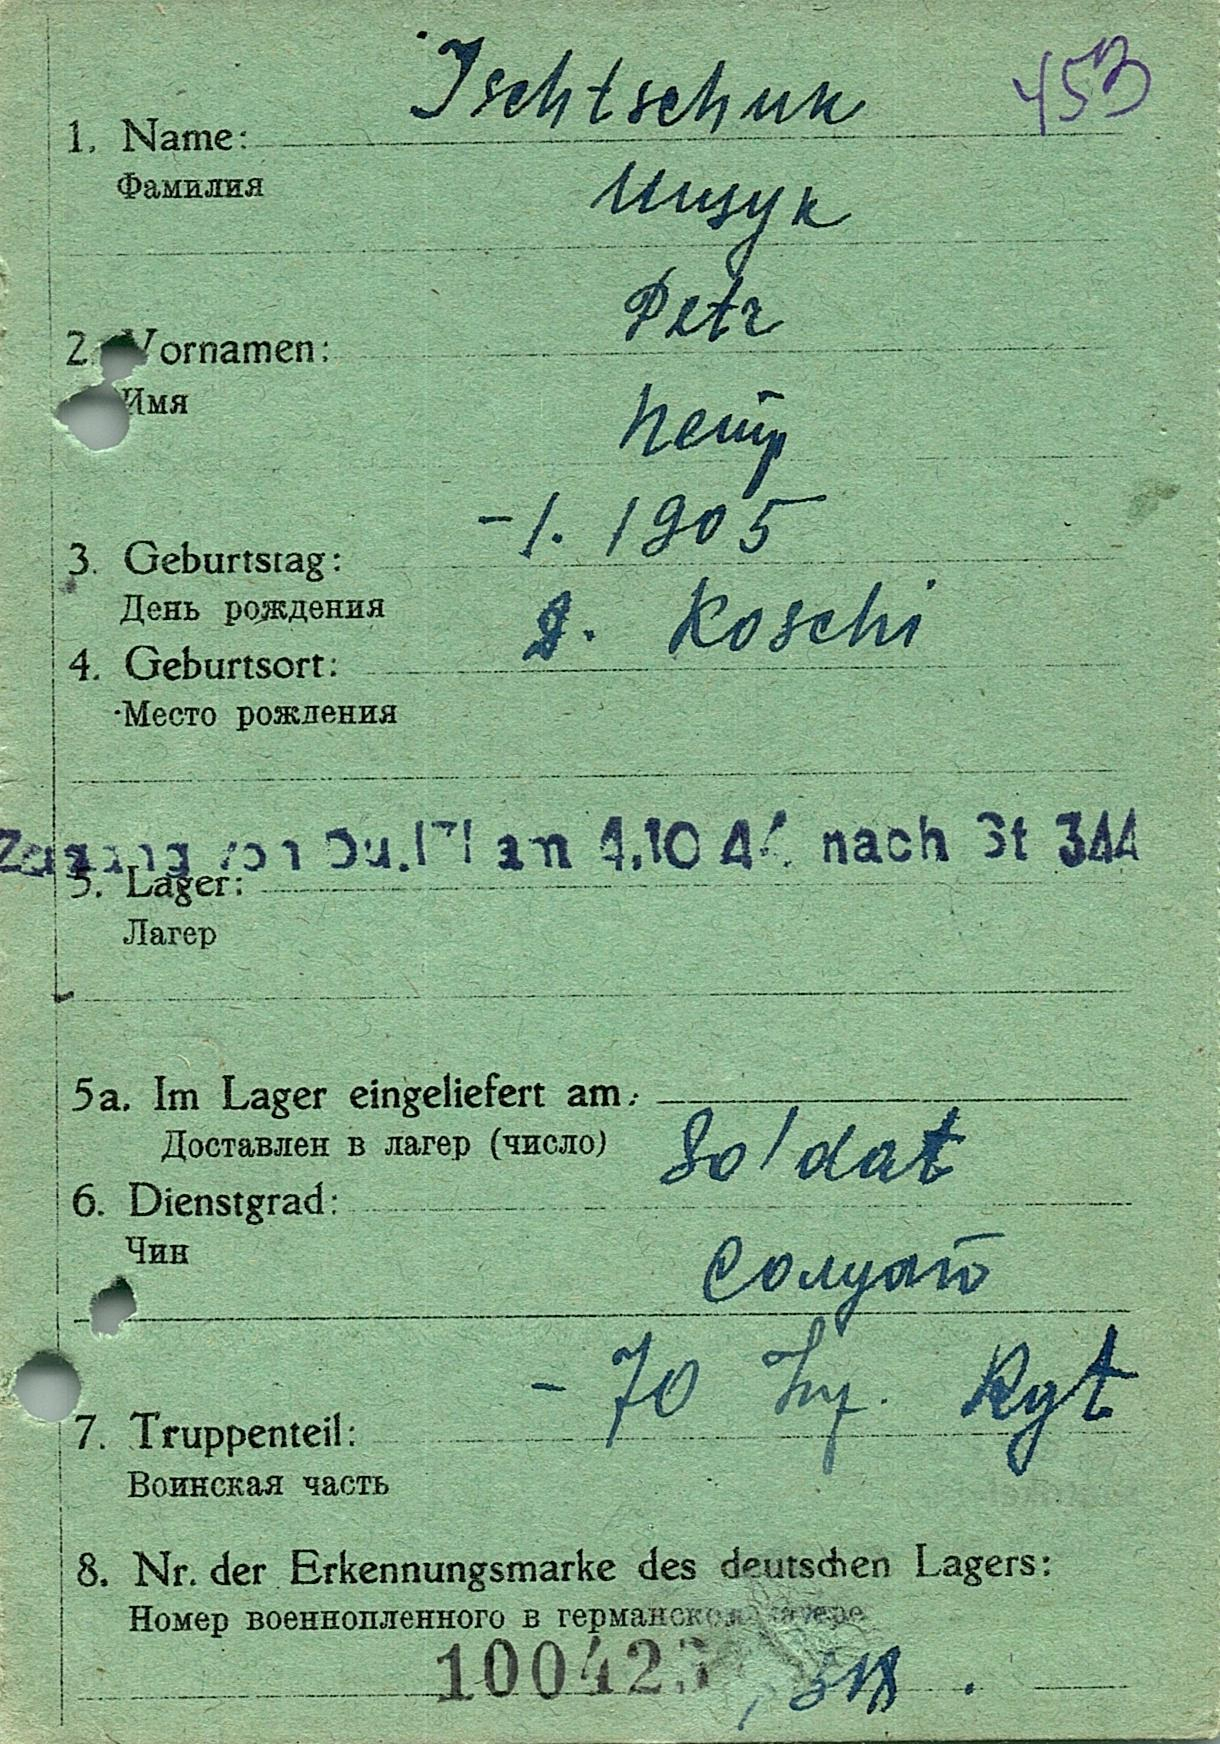 453
Ischtschuk
1. Name:
Фамилия
Ищук
Petr
2. Vornamen:
Имя
Петр
-1. 1905
3. Geburtstag:
День рождения
g. Koschi
4. Geburtsort:
Место рождения
Zugang von Du. am 4.10 4 nach St 344
5. Lager:
Лагер
5a. Im Lager eingeliefert am:
Доставлен в лагер (число)
Soldat
6. Dienstgrad:
Чин
Солдат
- 70 Inf. Rgt
7. Truppenteil:
Воинская часть
8. Nr. der Erkennungsmarke des deutschen Lagers:
Номер военнопленного в германском лагере
100423 , 318.